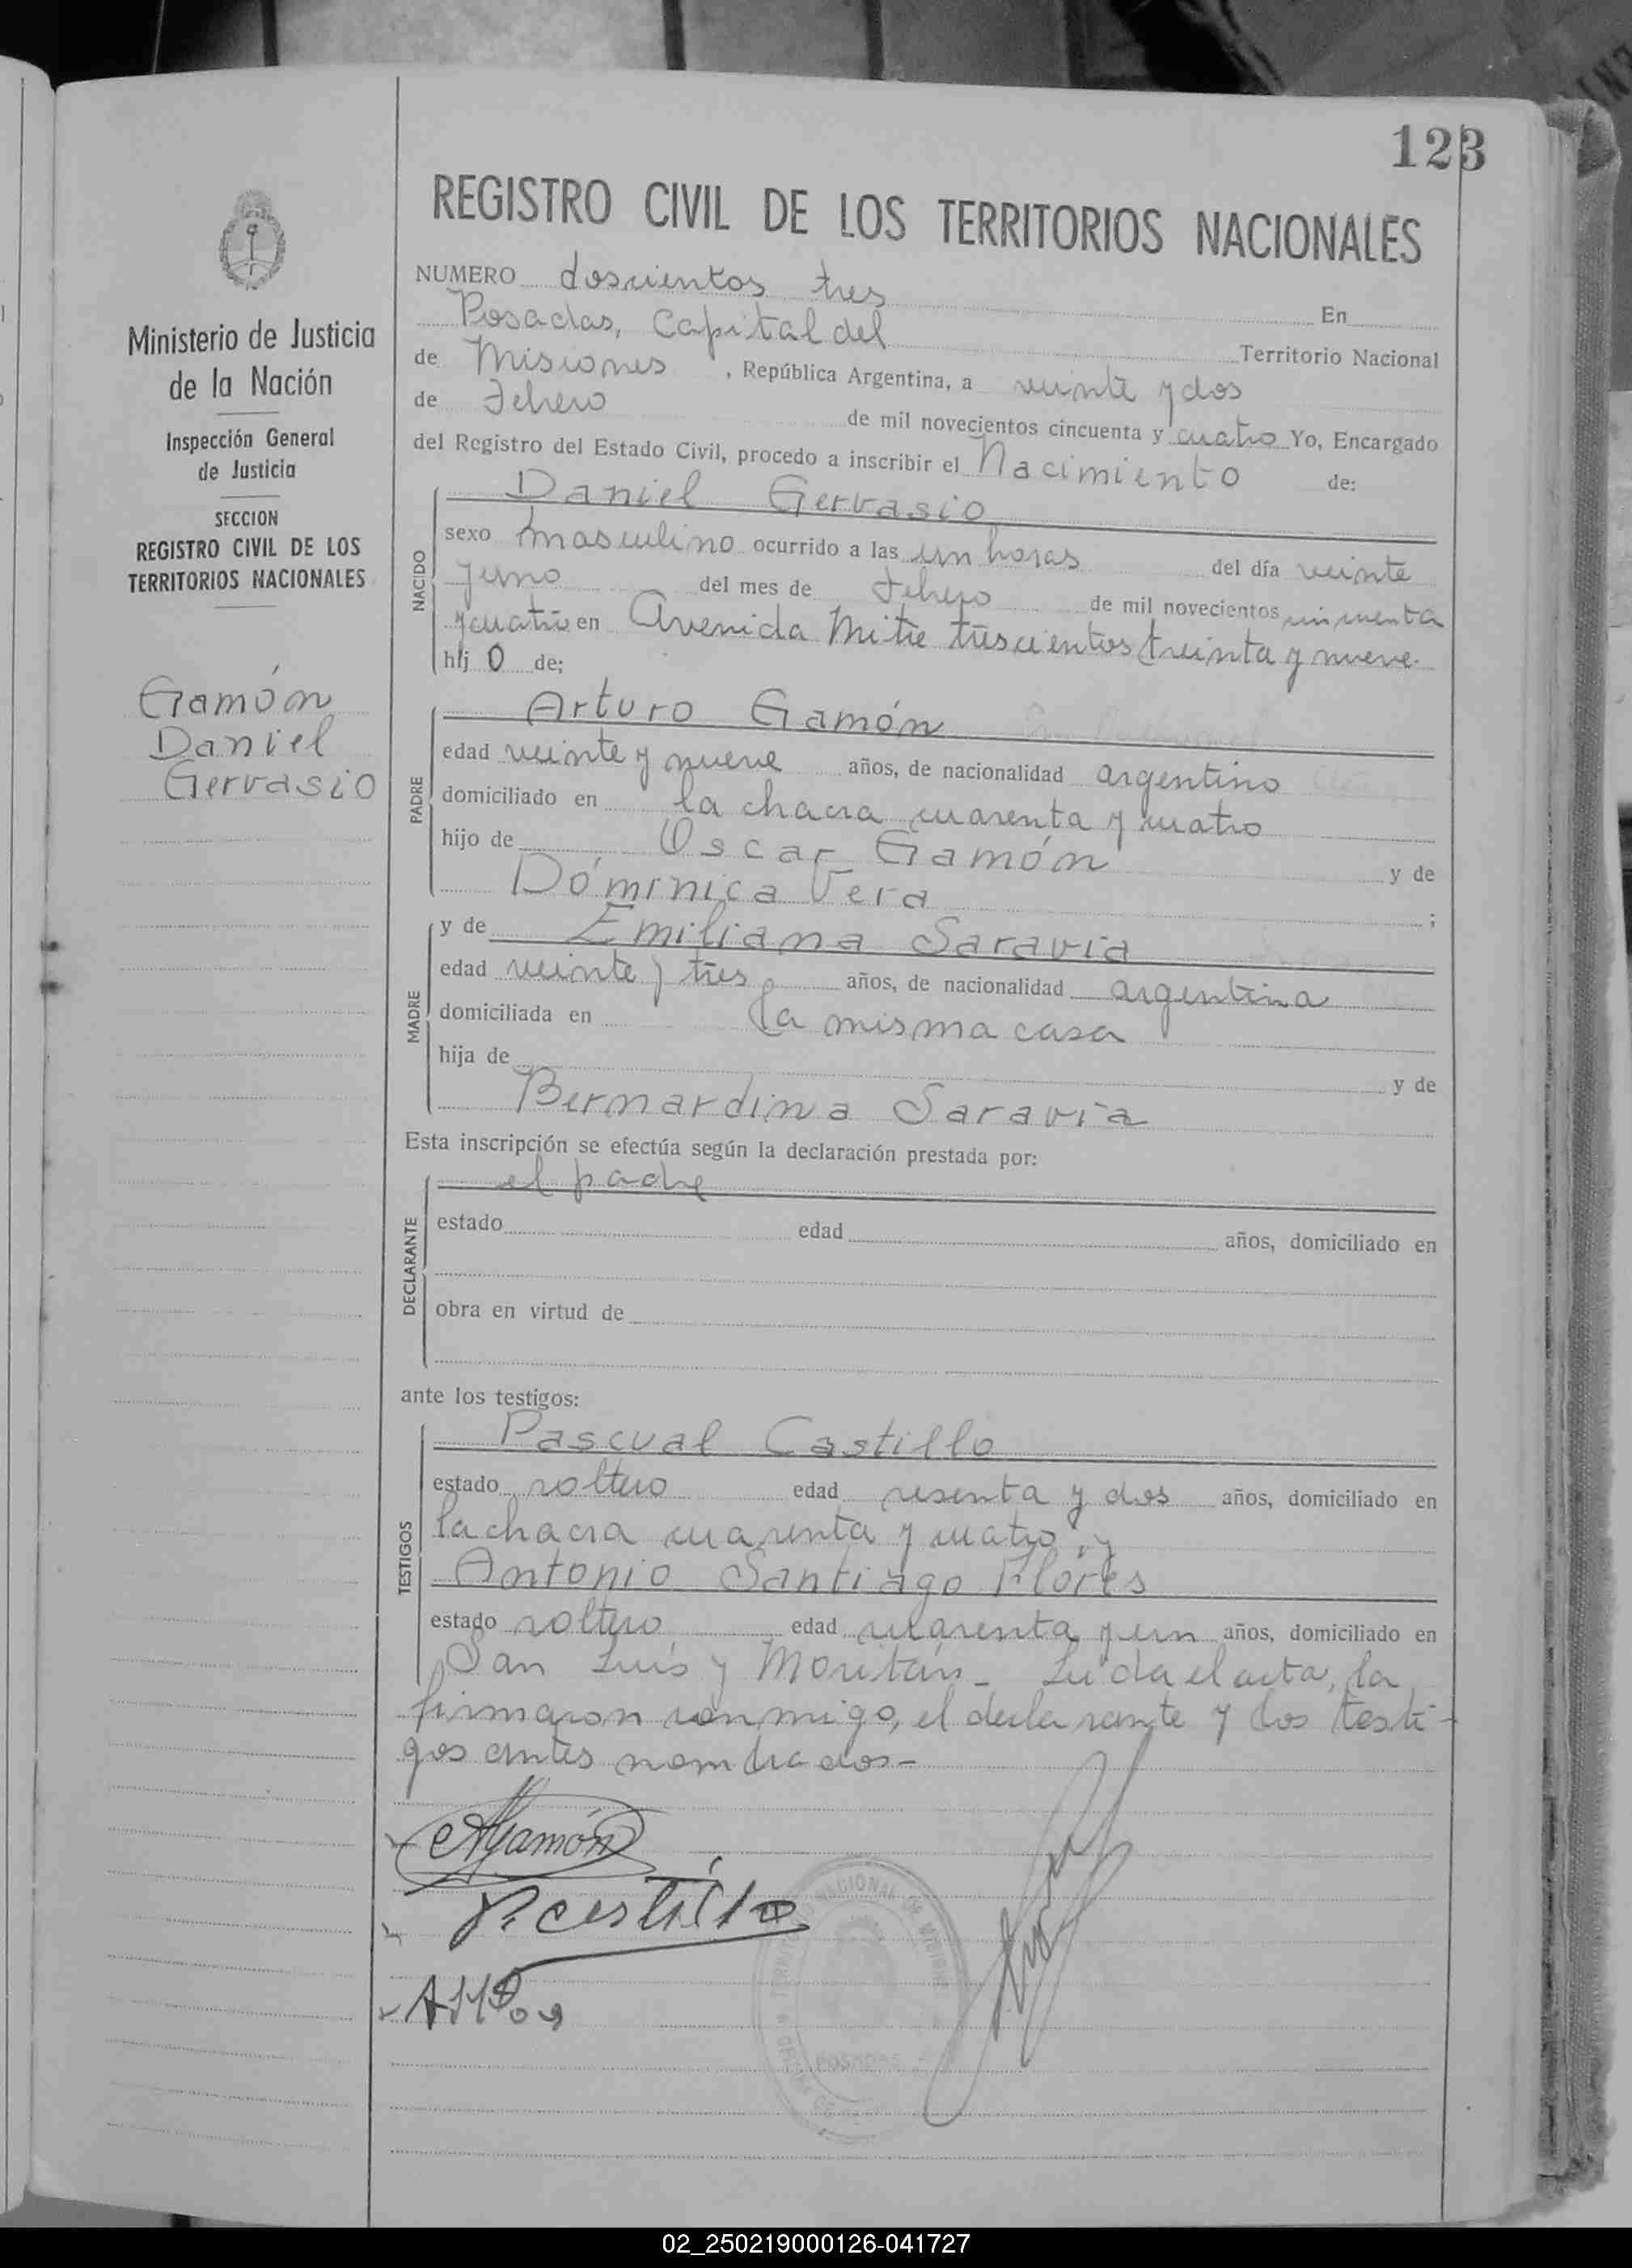 123
REGISTRO CIVIL DE LOS TERRITORIOS NACIONALES
Ministerio de Justicia
de la Nación
Inspección General
de Justicia
SECCION
REGISTRO CIVIL DE LOS
TERRITORIOS NACIONALES
Gamón
Daniel
Gervasio
NUMERO doscientos tres En
Posadas, Capital del Territorio Nacional
de Misiones, República Argentina, a veinte y dos
de Febrero de mil novecientos cincuenta y cuatro Yo, Encargado
del Registro del Estado Civil, procedo a inscribir el Nacimiento de:
NACIDO
Daniel Gervasio
sexo masculino ocurrido a las un horas del día veinte
y uno del mes de Febrero de mil novecientos cincuenta
y cuatro en Avenida Mitre trescientos treinta y nueve
hij o de;
PADRE
Arturo Gamón
edad veinte y nueve años, de nacionalidad argentino
domiciliado en la chacra cuarenta y cuatro
hijo de Oscar Gamón y de
Dóminica Vera ;
MADRE
y de Emiliana Saravia
edad veinte y tres años, de nacionalidad argentina
domiciliada en la misma casa
hija de y de
Bernardina Saravia
Esta inscripción se efectúa según la declaración prestada por:
DECLARANTE
el padre
estado edad años, domiciliado en
obra en virtud de
ante los testigos:
TESTIGOS
Pascual Castillo
estado soltero edad sesenta y dos años, domiciliado en
la chacra cuarenta y cuatro, y
Antonio Santiago Flores
estado soltero edad cuarenta y un años, domiciliado en
San Luis y Moritán - Leída el acta, la
firmaron conmigo, el declarante y los testi-
gos antes nombrados-
AGamón
P. Castillo
POSADAS
02_250219000126-041727